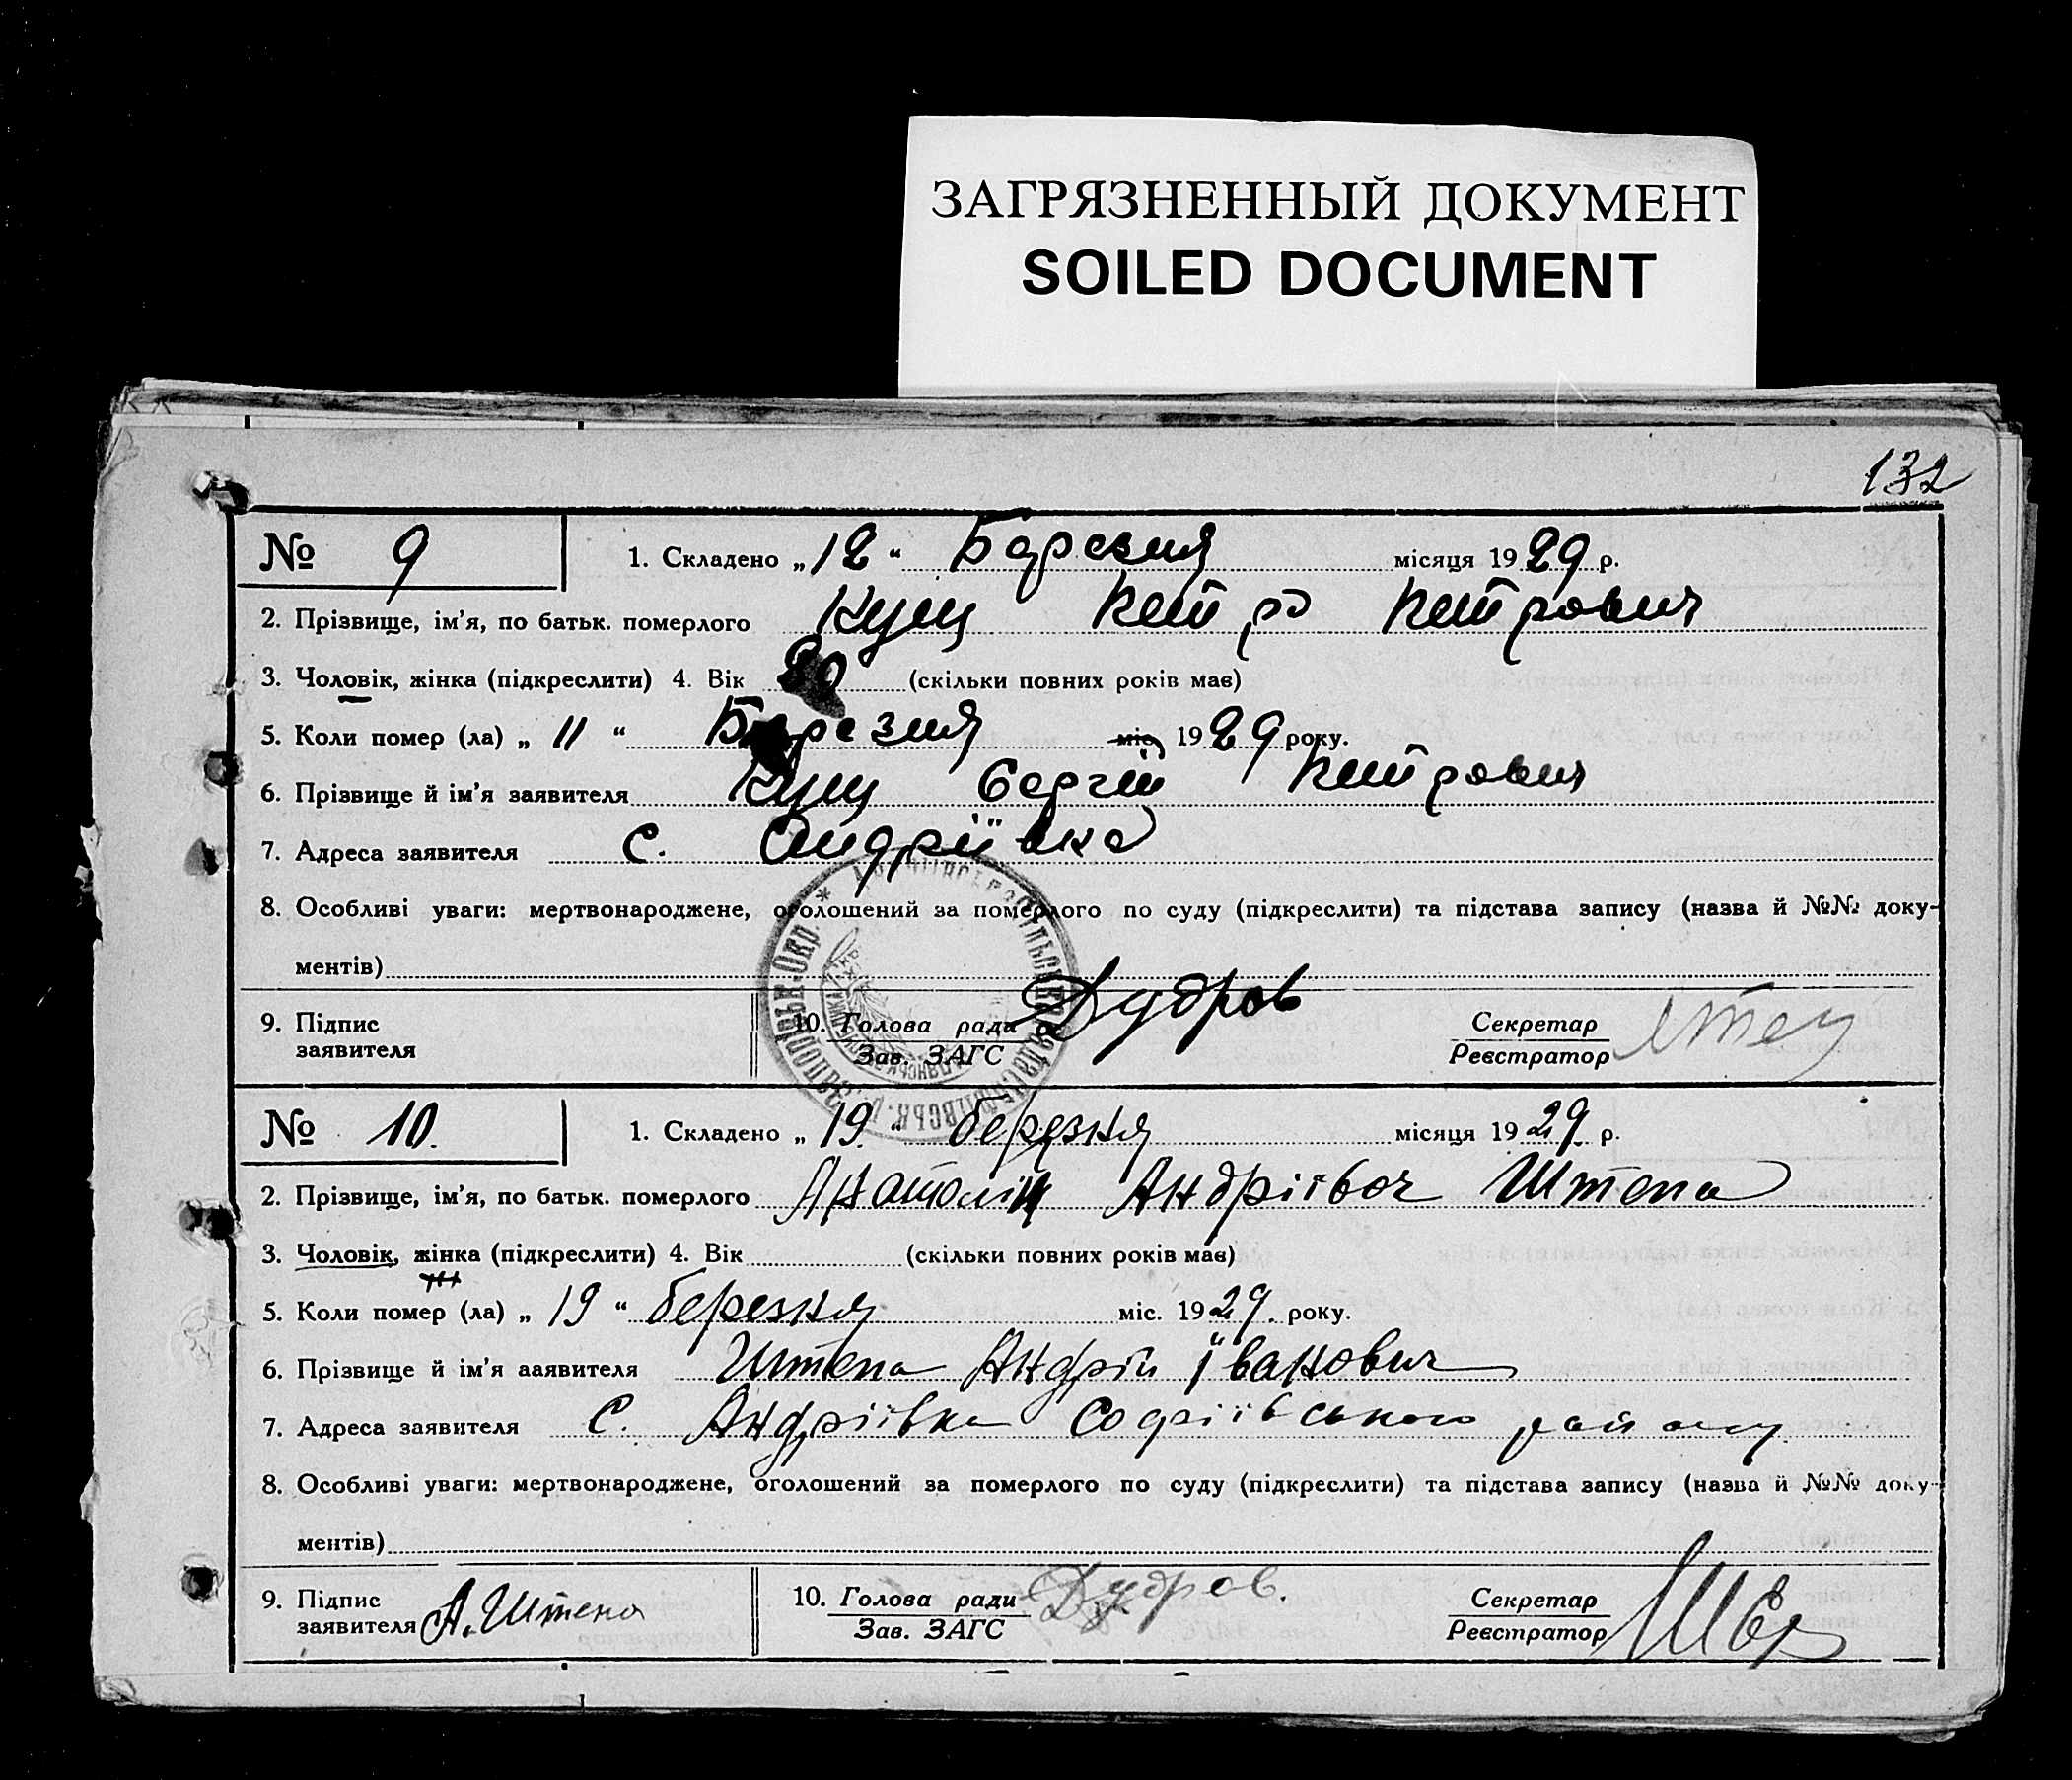 ЗАГРЯЗНЕННЫЙ ДОКУМЕНТ
SOILED DOCUMENT
132
№ 9 1. Складено „12“ Березня місяця 1929 р.
2. Прізвище, ім'я, по батьк. померлого Куц Петро Петрович
3. Чоловік, жінка (підкреслити) 4. Вік (скільки повних років має)
5. Коли помер (ла) „11“ Березня міс. 1929 року.
6. Прізвище й ім'я заявителя Куц Сергій Петрович
7. Адреса заявителя с. Андріївка
8. Особливі уваги: мертвонароджене, оголошений за померлого по суду (підкреслити) та підстава запису (назва й №№ доку-
ментів)
9. Підпис заявителя 10. Голова ради Зав. ЗАГС Дудров Секретар Реєстратор
№ 10. 1. Складено „19“ березня місяця 1929 р.
2. Прізвище, ім'я, по батьк. померлого Андріївоч Штепа
3. Чоловік, жінка (підкреслити) 4. Вік (скільки повних років має)
5. Коли помер (ла) „19“ березня міс. 1929. року.
6. Прізвище й ім'я ааявителя Штепа Андрій Їванович
7. Адреса заявителя с. Андріївка Софіївського району
8. Особливі уваги: мертвонароджене, оголошений за померлого по суду (підкреслити) та підстава запису (назва й №№ доку-
ментів)
9. Підпис заявителя А. Штепа 10. Голова ради Зав. ЗАГС Дудров. Секретар Реєстратор